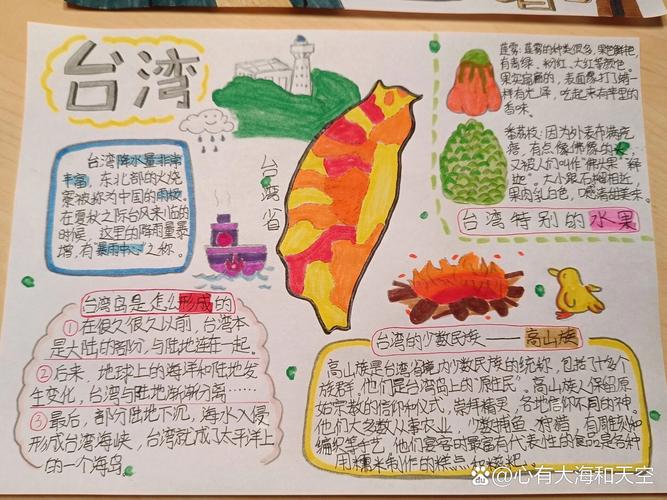 台湾
台湾降水量非常
丰富，东北部的火烧
寮被称为中国的雨极。
在夏秋之际台风来临的
时候，这里的降雨量暴
增，有"暴雨中心"之称。
台湾省
莲雾：莲雾的种类很多，果色鲜艳，
有青绿、粉红、大红等颜色。
果实扁圆的，表面像打了蜡一
样有光泽，吃起来有苹果的
香味。
番荔枝：因为外表布满疙
瘩，有点像佛像的
又被人们叫作"佛头果""释
迦"。大小跟石榴相近，
果肉乳白色，口感清甜美味。
台湾特别的水果
台湾岛是怎么形成的
①在很久很久以前，台湾本
是大陆的部分，与陆地连在一起。
②后来，地球上的海洋和陆地发
生变化，台湾与陆地渐渐分离……
③最后，部分陆地下沉，海水入侵
形成台湾海峡，台湾就成了太平洋上
的一个海岛。
台湾的少数民族——高山族
高山族是台湾省境内少数民族的统称，包括了十多个
族群。他们是台湾岛上的"原住民"。高山族人保留原
始宗教的信仰和仪式，崇拜精灵，各地信仰不同的神。
他们大多数从事农业，少数捕鱼、狩猎，有雕刻和
编织等手艺，他们宴客时最富有代表性的食品是各种
用糯米制作的糕点和糍粑。
心有大海和天空